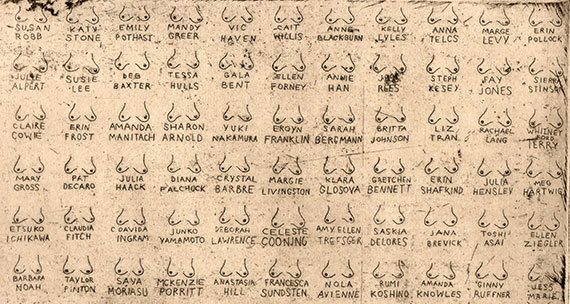 SUSAN ROBB KATY STONE EMILY POTHAST MANDY GREER VIC HAVEN CAIT WILLIS ANNE BLACKBURN KELLY LYLES ANNA TELCS MARGE LEVY ERIN POLLOCK
JULIE ALPERT SUSIE LEE DEB BAXTER TESSA HULLS GALA BENT ELLEN FORNEY ANNIE HAN REES STEPH KESEY FAY JONES SIERRA STINSON
CLAIRE COWIE ERIN FROST AMANDA MANITACH SHARON ARNOLD YUKI NAKAMURA ERGYN FRANKLIN SARAH BERGMANN BRITTA JOHNSON LIZ TRAN RACHAEL LANG WHITNEY FORD TERRY
MARY GROSS PAT DECARO JULIA HAACK DIANA FALCHUCK CRYSTAL BARBRE MARGIE LIVINGSTON KLARA GLOSOVA GRETCHEN BENNETT ERIN SHAFKIND JULIA HENSLEY MEG HARTWIG
ETSUKO ICHIKAWA CLAUDIA FITCH C DAVIDA INGRAM JUNKO YAMAMOTO DEBORAH LAWRENCE CELESTE COONING AMY ELLEN TREFSGER SASKIA DELORES JANA BREVICK TOSHI ASAI ELLEN ZIEGLER
BARBARA NOAH TAYLOR PINTON SAYA MORIASU MCKENZIE PORRITT ANASTASIA HILL FRANCESCA SUNDSTEN NOLA AVIENNE RUMI KOSHINO AMANDA KNOWLES GINNY RUFFNER JESS MARIE